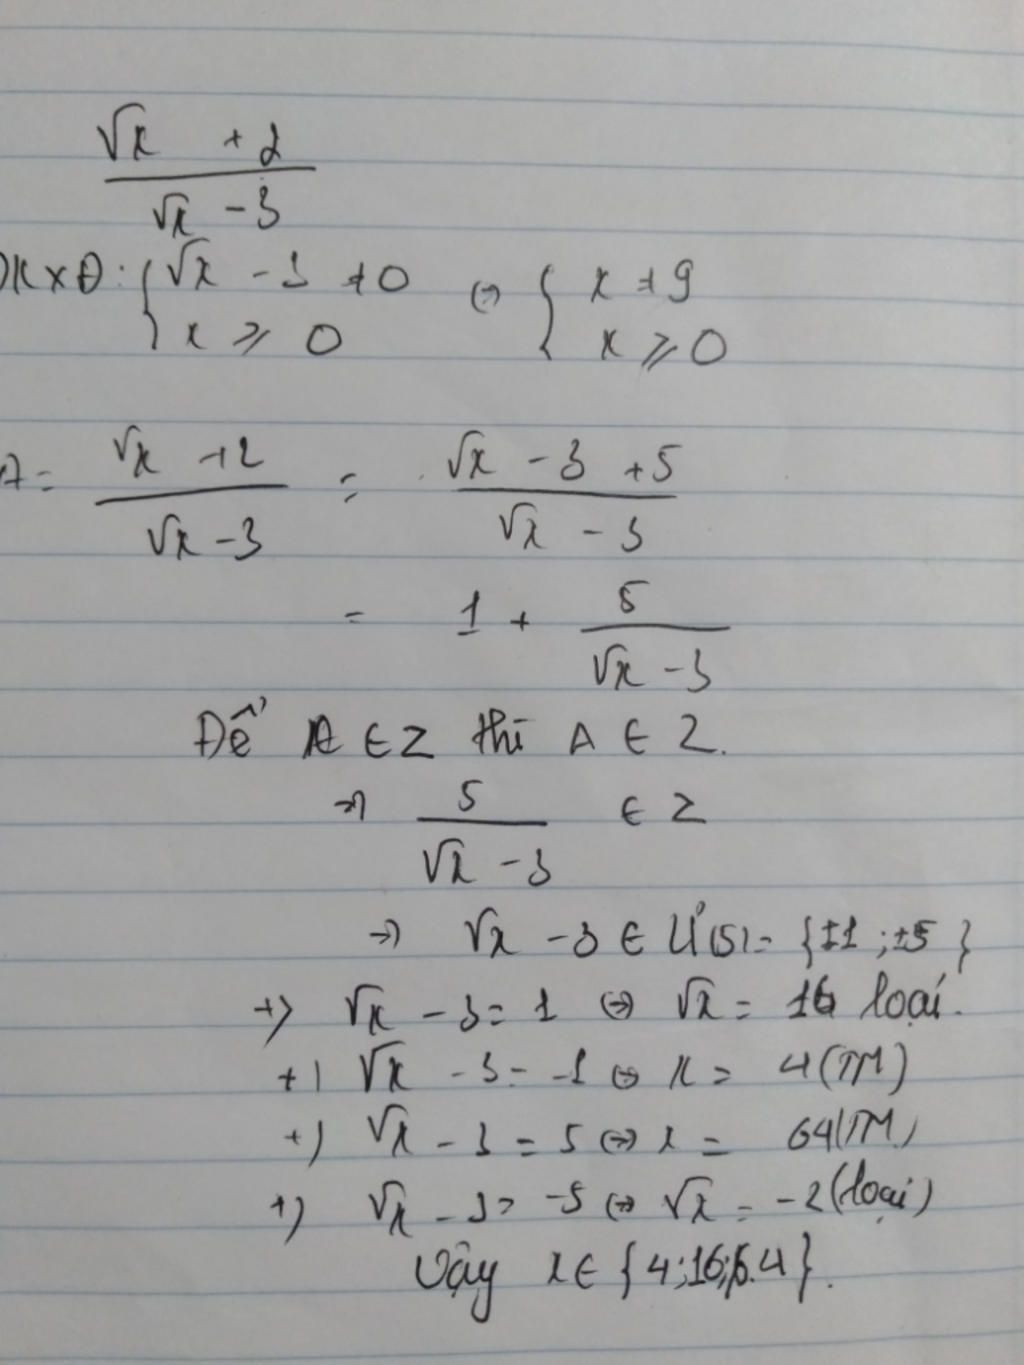 (√x + 2)/(√x - 3)
ĐKXĐ: { √x - 3 ≠ 0 ; x ≥ 0 ⇔ { x ≠ 9 ; x ≥ 0
A = (√x + 2)/(√x - 3) = (√x - 3 + 5)/(√x - 3)
= 1 + 5/(√x - 3)
Để A ∈ Z thì A ∈ Z.
⇒ 5/(√x - 3) ∈ Z
⇒ √x - 3 ∈ Ư(5) = {±1 ; ±5}
+) √x - 3 = 1 ⇔ √x = 16 loại.
+) √x - 3 = -1 ⇔ x = 4 (TM)
+) √x - 3 = 5 ⇔ x = 64 (TM)
+) √x - 3 = -5 ⇔ √x = -2 (loại)
Vậy x ∈ {4;16;64}.